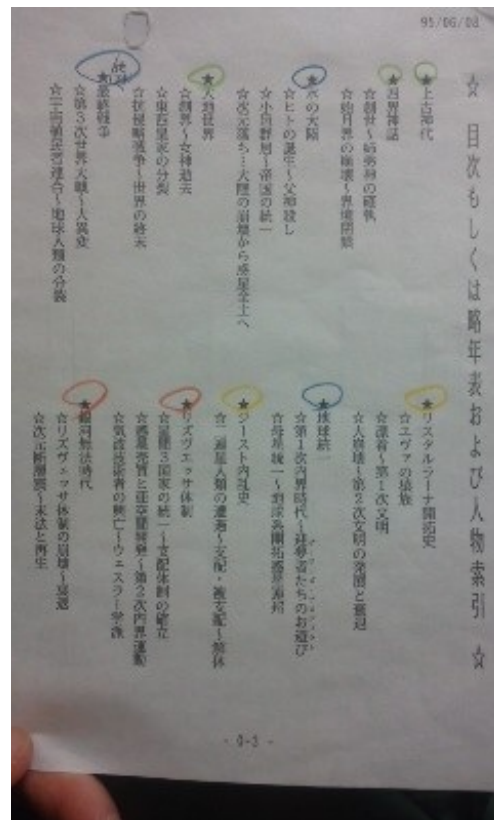 95/06/08
☆ 目次もしくは略年表および人物索引 ☆
★上古神代
★四界神話
☆創世~姉弟神の確執
☆始月界の崩壊~界境閉鎖
★水の大陸
☆ヒトの誕生~父神殺し
☆小国群居~帝国の統一
☆次元落ち…大陸の崩壊から惑星全土へ
★大地世界
☆創界~女神過去
☆東西皇家の分裂
☆抗侵略戦争~世界の終末
★最終戦争
☆第3次世界大戦~大異変
☆地球人類の分裂
★リスタルラーナ開拓史
☆エヴァの墳族
☆漂着~第1次文明
☆大崩壊~第2次文明の発展と衰退
★球統一
☆第1次内界時代~達のお遊び
☆母星統一~地球系開拓惑星連邦
★ジースト内乱史
☆二週星人類の遭遇~支配・被支配~解体
★リズヴェッサ体制
☆星間3国家の統一~支配体制の確立
☆惑星売買と亜空間開発~第2次内界運動
☆技術者の興亡~ウェスラー学派
★銀河無法時代
☆リズヴェッサ体制の崩壊~衰退
☆次元断層震~末法と再生
- 0-3 -